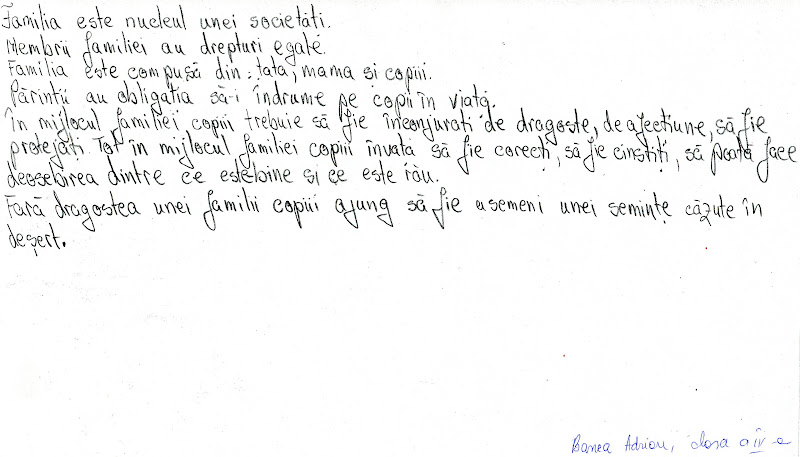 Familia este nucleul unei societăti.
Membrii familiei au drepturi egale.
Familia este compusă din: tata, mama si copiii.
Părintii au obligatia să-i îndrume pe copii în viată.
În mijlocul familiei copiii trebuie să fie înconjurati de dragoste, de afectiune, să fie
protejati. Tot în mijlocul familiei copiii învată să fie corecți, să fie cinstiți, să poată face
deosebirea dintre ce este bine si ce este rău.
Fară dragostea unei familii copiii ajung să fie asemeni unei semințe căzute în
deșert.
Banea Adrian, clasa a IV-a